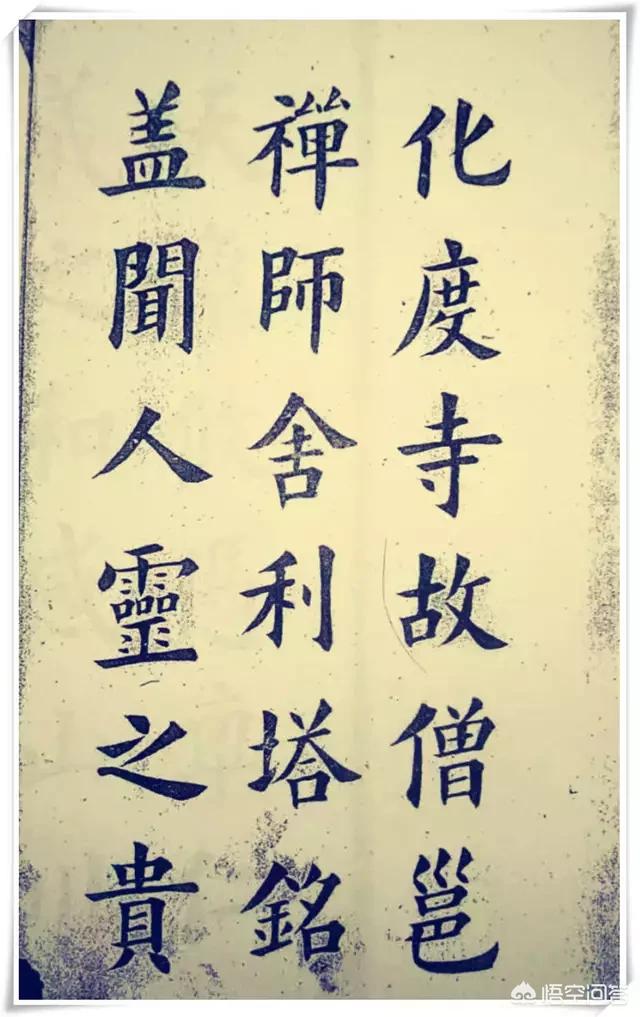 化度寺故僧邕
禪師舍利塔銘
盖聞人靈之貴
悟空问答